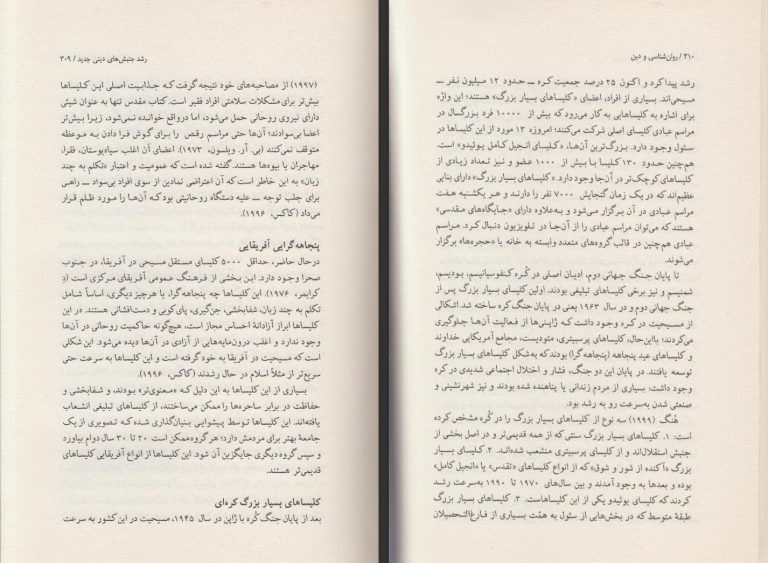 رشد جنبش‌های دینی جدید / ۳۰۹
(۱۹۹۷) از مصاحبه‌های خود نتیجه گرفت که جذابیت اصلی این کلیساها
بیش‌تر برای مشکلات سلامتی افراد فقیر است. کتاب مقدس تنها به عنوان شیئی
دارای نیروی روحانی حمل می‌شود، اما درواقع خوانده نمی‌شود، زیرا بیش‌تر
اعضا بی‌سوادند؛ آن‌ها حتی مراسم رقص را برای گوش فرا دادن به موعظه
متوقف نمی‌کنند (بی. آر. ویلسون، ۱۹۷۳). اعضای آن اغلب سیاه‌پوستان، فقرا،
مهاجران یا بیوه‌ها هستند. گفته شده است که عمومیت و اعتبار «تکلم به چند
زبان» به این خاطر است که آن اعتراضی نمادین از سوی افراد بی‌سواد ـــ راهی
برای جلب توجه ـــ علیه دستگاه روحانیتی بود که آن‌ها را مورد ظلم قرار
می‌داد (کاکس، ۱۹۹۶).
پنجاهه‌گرایی آفریقایی
درحال حاضر، حداقل ۵۰۰۰ کلیسای مستقل مسیحی در آفریقا، در جنوب
صحرا وجود دارد. این بخشی از فرهنگ عمومی آفریقای مرکزی است (د
کرایمر، ۱۹۷۶). این کلیساها چه پنجاهه‌گرا، یا هرچیز دیگری، اساساً شامل
تکلم به چند زبان، شفابخشی، جن‌گیری، پای‌کوبی و دست‌افشانی هستند. در این
کلیساها ابراز آزادانهٔ احساس مجاز است، هیچ‌گونه حاکمیت روحانی در آن‌ها
وجود ندارد و اغلب درون‌مایه‌هایی از آزادی در آن‌ها دیده می‌شود. این شکلی
است که مسیحیت در آفریقا به خود گرفته است و این کلیساها به سرعت حتی
سریع‌تر از مثلاً اسلام در حال رشدند (کاکس، ۱۹۹۶).
بسیاری از این کلیساها به این دلیل که «معنوی‌تر» بودند، و شفابخشی و
حفاظت در برابر ساحره‌ها را ممکن می‌ساختند، از کلیساهای تبلیغی انشعاب
یافته‌اند. این کلیساها توسط پیشوایی بنیان‌گذاری شده که تصویری از یک
جامعهٔ بهتر برای مردمش دارد؛ هر گروه ممکن است ۲۰ تا ۳۰ سال دوام بیاورد
و سپس گروه دیگری جایگزین آن شود. این کلیساها از انواع آفریقایی کلیساهای
قدیمی‌تر هستند.
کلیساهای بسیار بزرگ کره‌ای
بعد از پایان جنگ کُره با ژاپن در سال ۱۹۴۵، مسیحیت در این کشور به سرعت
۳۱۰ / روان‌شناسی و دین
رشد پیدا کرد و اکنون ۲۵ درصد جمعیت کره ـــ حدود ۱۲ میلیون نفر ـــ
مسیحی‌اند. بسیاری از افراد، اعضای «کلیساهای بسیار بزرگ» هستند؛ این واژه
برای اشاره به کلیساهایی به کار می‌رود که بیش از ۱۰۰۰۰ فرد بزرگسال در
مراسم عبادی کلیسای اصلی شرکت می‌کنند؛ امروزه ۱۳ مورد از این کلیساها در
سئول وجود دارد. بزرگ‌ترین آن‌ها، «کلیسای انجیل کامل یوئیدو» است.
هم‌چنین حدود ۱۳۰ کلیسا با بیش از ۱۰۰۰ عضو و نیز تعداد زیادی از
کلیساهای کوچک‌تر در آن‌جا وجود دارد. «کلیساهای بسیار بزرگ» دارای بنایی
عظیم‌اند که در یک زمان گنجایش ۷۰۰۰ نفر را دارند و هر یکشنبه هفت
مراسم عبادی در آن برگزار می‌شود و به‌علاوه دارای «جایگاه‌های مقدسی»
هستند که می‌توان مراسم عبادی را از آن‌جا در تلویزیون دنبال کرد. مراسم
عبادی هم‌چنین در قالب گروه‌های متعدد وابسته به خانه یا «حجره‌ها» برگزار
می‌شوند.
تا پایان جنگ جهانی دوم، ادیان اصلی در کُره کنفوسیانیسم، بودیسم،
شمنیسم و نیز برخی کلیساهای تبلیغی بودند. اولین کلیسای بسیار بزرگ پس از
جنگ جهانی دوم و در سال ۱۹۶۳ یعنی در پایان جنگ کره ساخته شد. اشکالی
از مسیحیت در کره وجود داشت که ژاپنی‌ها از فعالیت آن‌ها جلوگیری
می‌کردند؛ بااین‌حال، کلیساهای پرسبیتری، متودیست، مجامع آمریکایی خداوند
و کلیساهای عید پنجاهه (پنجاهه‌گرا) بودند که به‌شکل کلیساهای بسیار بزرگ
توسعه یافتند. در پایان این دو جنگ، فشار و اختلال اجتماعی شدیدی در کره
وجود داشت؛ بسیاری از مردم زندانی یا پناهنده شده بودند و نیز شهرنشینی و
صنعتی شدن به‌سرعت رو به رشد بود.
هُنگ (۱۹۹۹) سه نوع از کلیساهای بسیار بزرگ را در کُره مشخص کرده
است: ۱. کلیساهای بسیار بزرگ سنتی که از همه قدیمی‌تر و در اصل بخشی از
جنبش استقلال‌اند و از کلیسای پرسبیتری منشعب شده‌اند. ۲. کلیسای بسیار
بزرگ «آکنده از شور و شوق» که از انواع کلیساهای «تقدس» یا «انجیل کامل»
بوده و بعدها به وجود آمدند و بین سال‌های ۱۹۷۰ تا ۱۹۹۰ به‌سرعت رشد
کردند که کلیسای یوئیدو یکی از این کلیساهاست. ۳. کلیساهای بسیار بزرگ
طبقهٔ متوسط که در بخش‌هایی از سئول به همّت بسیاری از فارغ‌التحصیلان